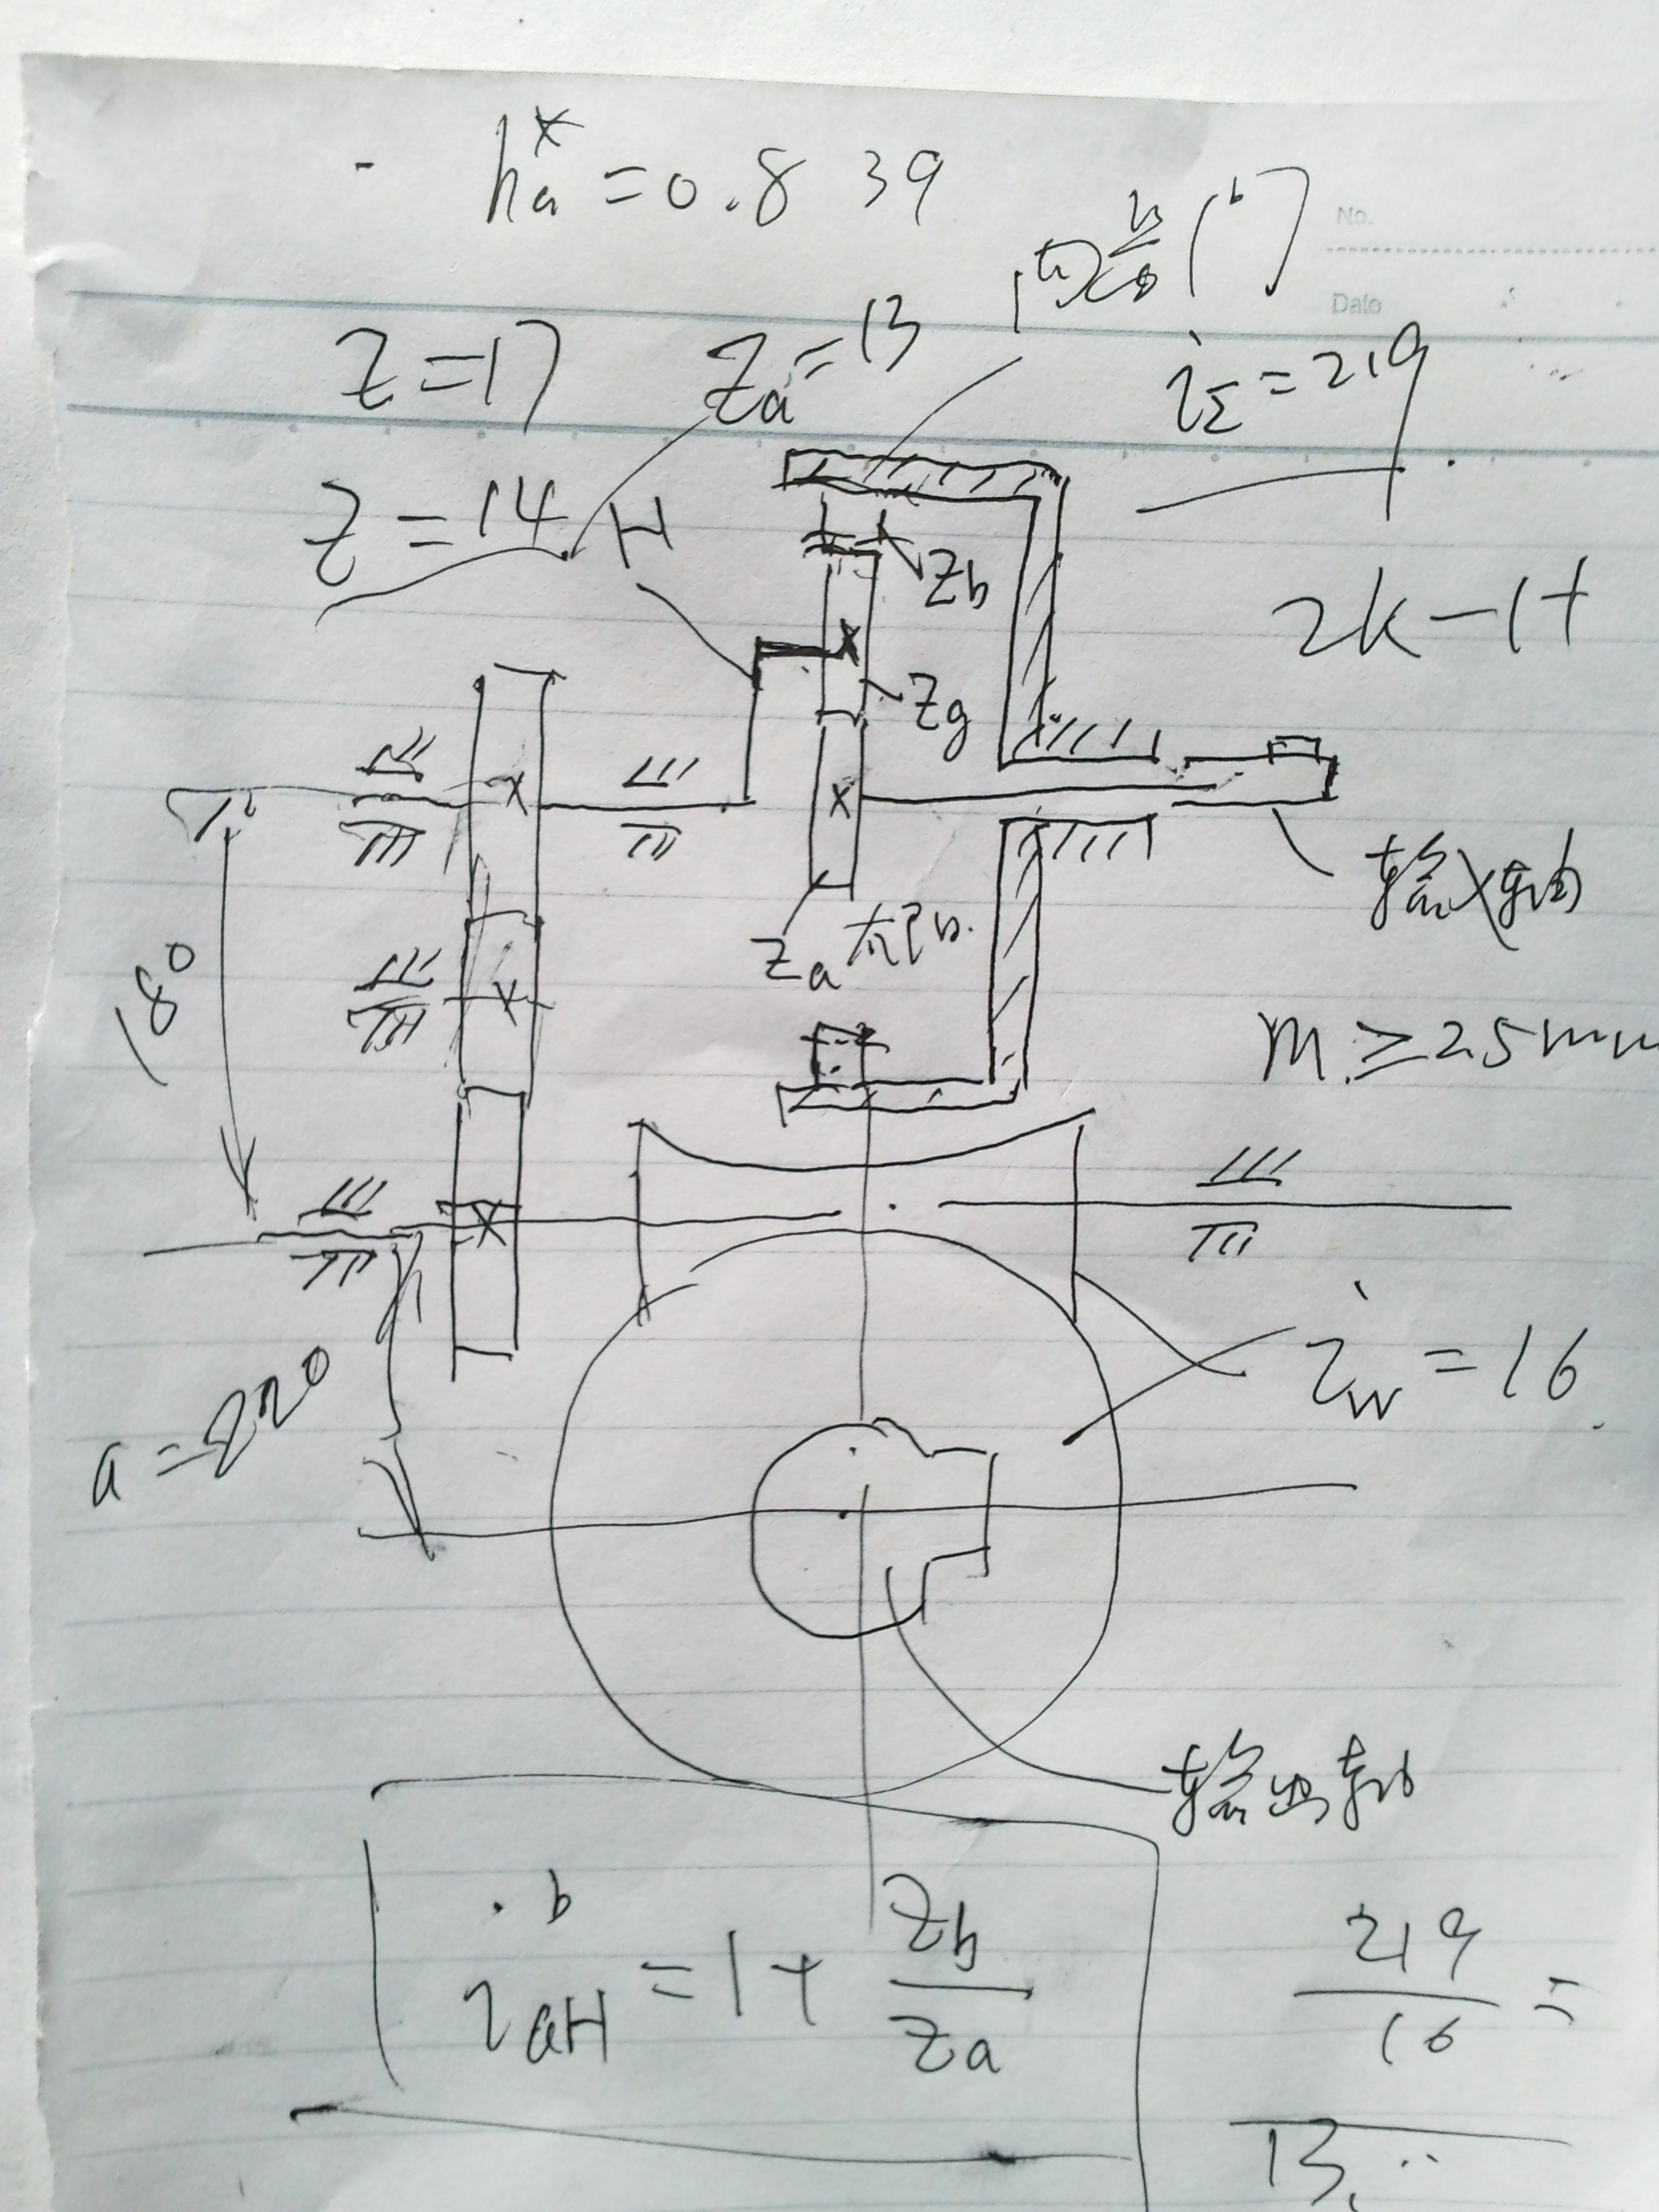 ha* = 0.839
No.
内齿(b)
Date
Z=17 Za=13
iΣ=219
Z=14 H
Zb
2K-H
Zg
输入轴
Za 太阳
180
m≥25mm
iw=16
a=220
输出轴
i^b_aH = 1+ Zb/Za
219/16 =
13.